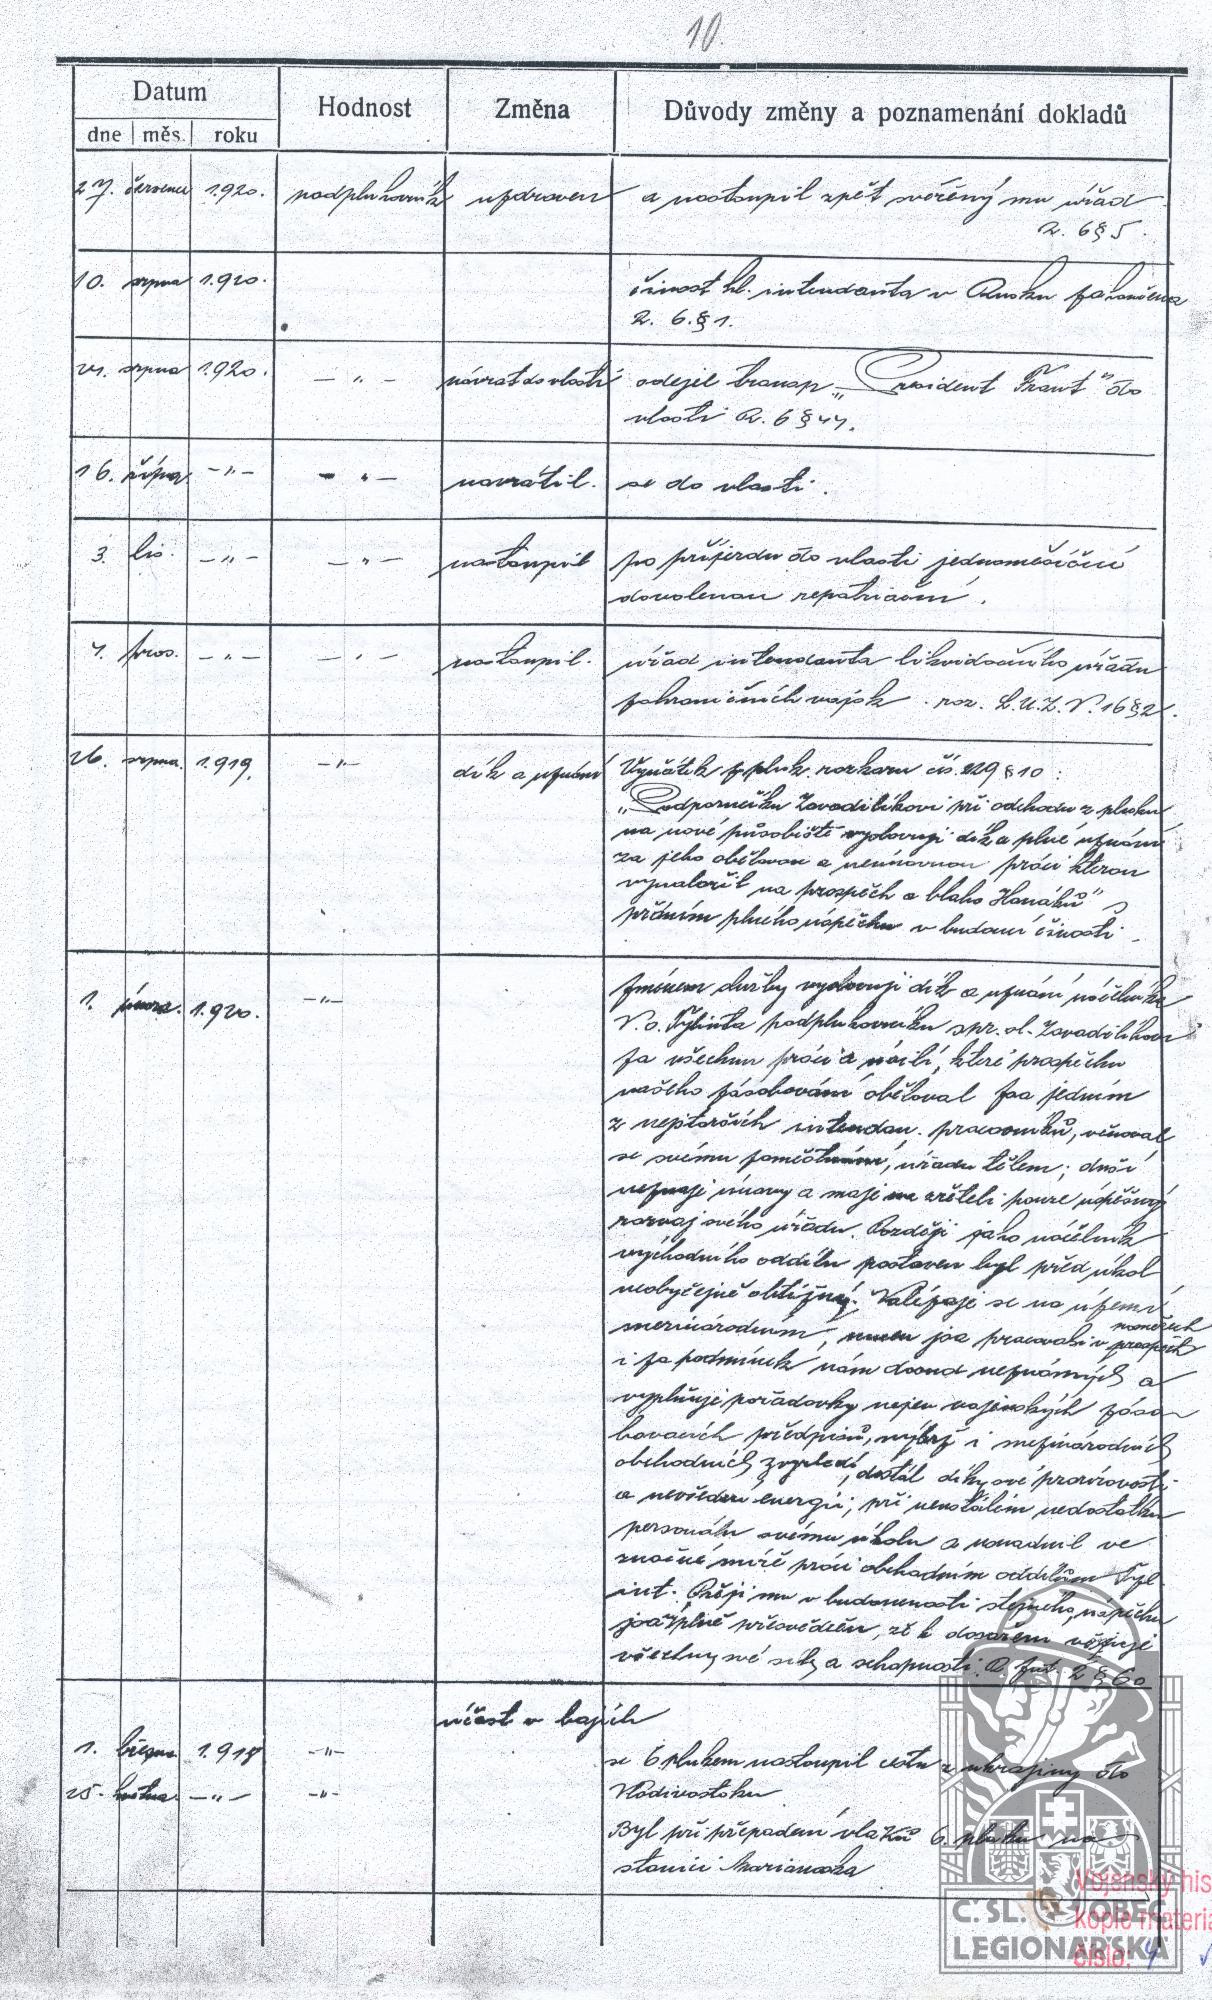 10.
Datum Hodnost Změna Důvody změny a poznamenání dokladů
dne měs. roku
27. července 1920. podplukovník uzdraven a nastoupil zpět svěřený mu úřad
R. 6 § 5.
10. srpna 1920. činost hl. intendanta v Rusku zakončena
R. 6. § 1.
srpna 1920. — " — návrat do vlasti odejel transp. „President Grant" do
vlasti R. 6 §
16. října — " — — " — navrátil. se do vlasti.
3. lis. — " — — " — nastoupil po příjezdu do vlasti jednoměsíční
dovolenou repatriační.
pros. — " — — " — nastoupil. úřad intendanta likvidačního úřadu
zahraničních vojsk. roz. L.U.Z.V. 16 § 2.
26. srpna. 1919. — " — dík a uznání Výnátek z pluk. rozkazu čís. 229 § 10:
„Podporučíku Zavadilíkovi při odchodu z pluku
na nové působiště vyslovuji dík a plné uznání
za jeho obětavou a neúnavnou práci kterou
vynaložil na prospěch a blaho Hanáků" s
přáním plného úspěchu v budoucí činosti.
1. února. 1920. — " — Jménem služby vyslovuji dík a uznání náčelníka
V. o. Tylinta podplukovníku spr. sl. Zavadilíkovi
za všechnu práci a úsilí, které prospěchu
našeho zásobování obětoval. Jsa jedním
z nejstarších intendan. pracovníků, věnoval
se svému zaměstnání, úřadu tělem i duší
neznaje únavy a maje na zřeteli pouze úspěšný
rozvoj svého úřadu. Později jako náčelník
východního oddílu postaven byl před úkol
neobyčejně obtížný. Nalézaje se na území
mezinárodním, nucen jsa pracovati v poměrech
i za podmínek nám dosud neznámých a
vyplňuje požadavky nejen vojenských záso-
bovacích předpisů, nýbrž i mezinárodních
obchodních zvyklostí, dostál díky své pracovitosti
a nevšední energii, při neustálém nedostatku
personálu svému úkolu a usnadnil ve
značné míře práci obchodním oddílům Tyl-
int. Přeji mu v budoucnosti stejného úspěchu
jsa úplně přesvědčen, že k dosažení věnuje
všechny své síly a schopnosti. R. 2 § 60
účast v bojích
1. března 1918 — " — se 6. plukem nastoupil cestu z ukrajiny do
25. května. — " — — " — Vladivostoku
Byl při přepadení vlaků 6. pluku na
stanici Marianovka
Č.SL. OBEC
LEGIONÁŘSKÁ
Vojenský his
kopie materiá
číslo: 4